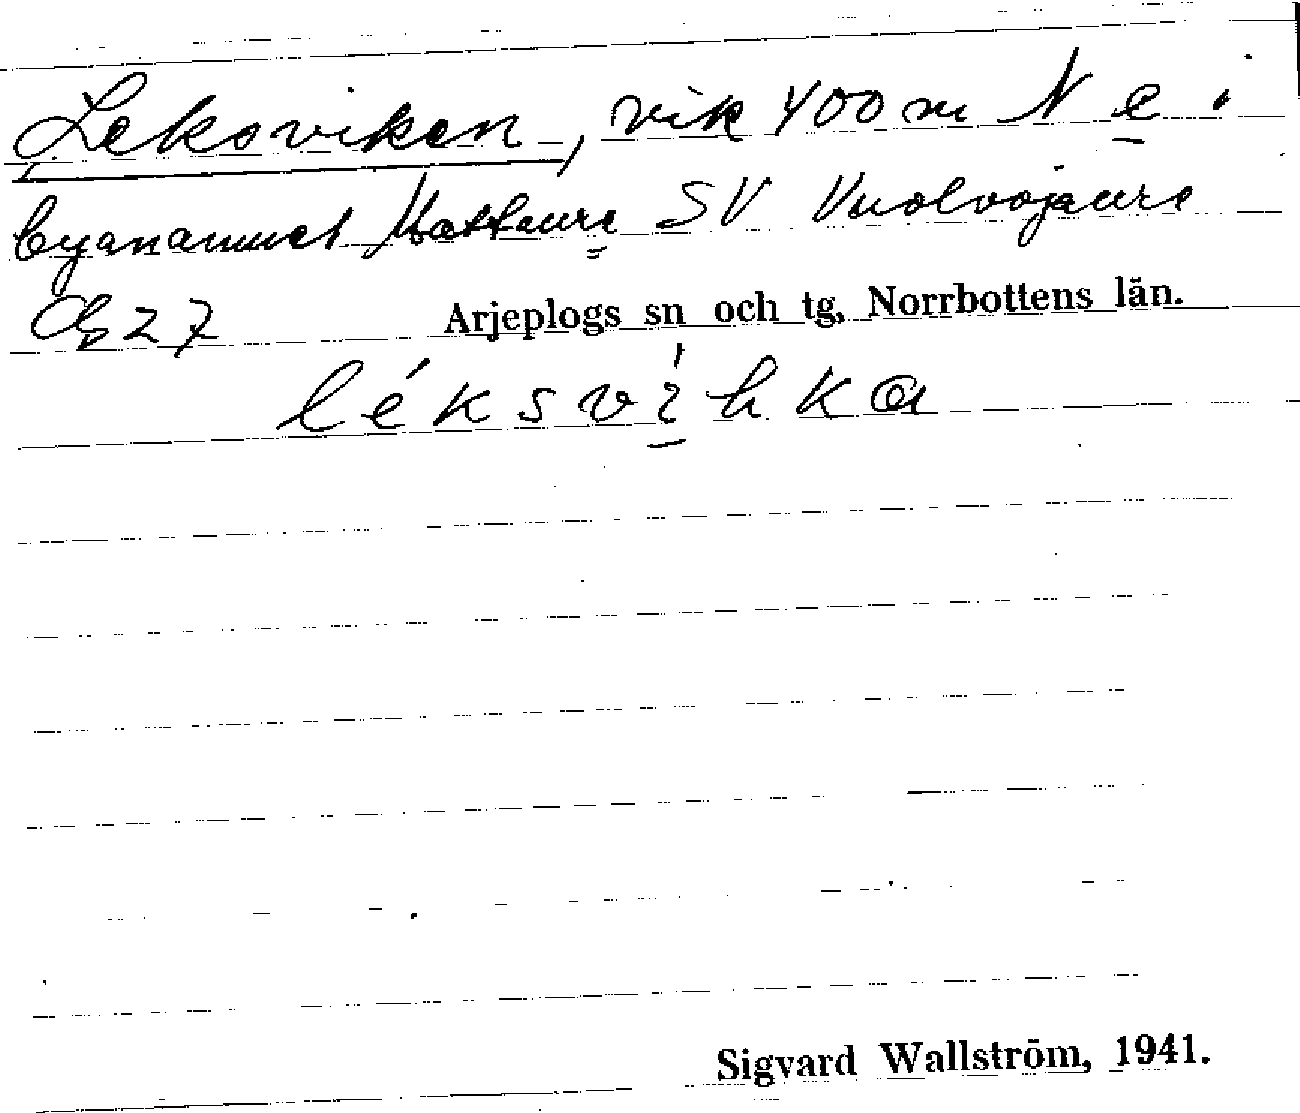 Leksviken, vik 400 m N e i
byanamnet Mattaure SV Vuolvojaure
Cb 27 Arjeplogs sn och tg, Norrbottens län.
léksvi̲hka
Sigvard Wallström, 1941.